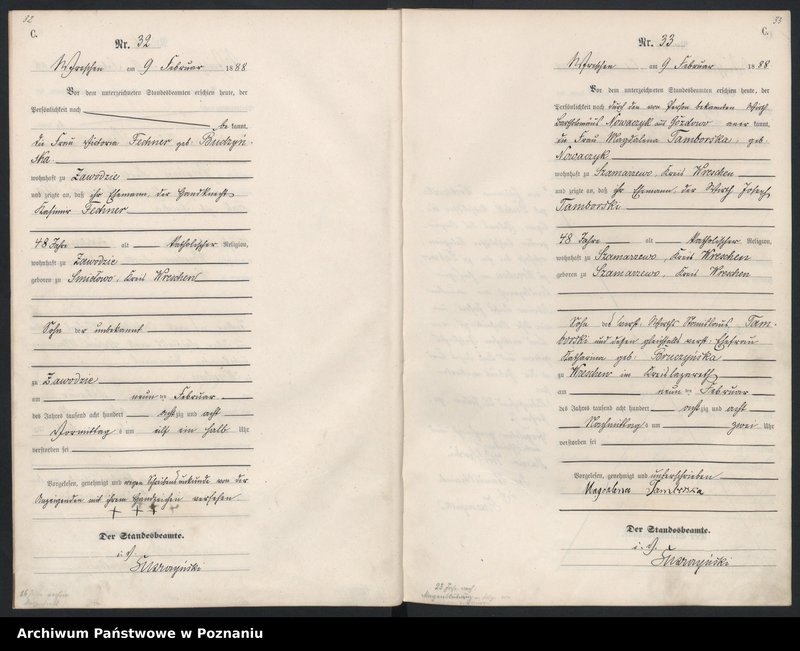 32
C.
Nr. 32
Wreschen am 9 Februar 1888
Vor dem unterzeichneten Standesbeamten erschien heute, der
Persönlichkeit nach
be kannt,
die Frau Victoria Fechner geb: Budzyń-
ska
wohnhaft zu Zawodzie
und zeigte an, daß ihr Ehemann, der Handknecht
Kasimir Fechner
48 Jahre alt katholischer Religion,
wohnhaft zu Zawodzie
geboren zu Smidowo, Kreis Wreschen
Sohn der unbekannt
zu Zawodzie
am neun ten Februar
des Jahres tausend acht hundert acht zig und acht
Vormittag s um elf ein halb Uhr
verstorben sei
Vorgelesen, genehmigt und wegen Schreibensunkunde von der
Anzeigenden mit ihrem Handzeichen versehen
+ + +
Der Standesbeamte.
i. V.
33
C.
Nr. 33
Wreschen am 9 Februar 1888
Vor dem unterzeichneten Standesbeamten erschien heute, der
Persönlichkeit nach durch den von Person bekannten Wirth
Bartholomäus Nowaczyk aus Gozdowo aner kannt,
die Frau Magdalena Tamborska, geb:
Nowaczyk
wohnhaft zu Szamarzewo, Kreis Wreschen
und zeigte an, daß ihr Ehemann, der Wirth Joseph
Tamborski
48 Jahre alt katholischer Religion,
wohnhaft zu Szamarzewo, Kreis Wreschen
geboren zu Szamarzewo, Kreis Wreschen
Sohn des verst: Wirths Stanislaus Tam-
borski und dessen gleichfalls verst: Ehefrau
Katharina geb: Bruczyńska
zu Wreschen im Kreislazareth
am neun ten Februar
des Jahres tausend acht hundert acht zig und acht
Nachmittag s um zwei Uhr
verstorben sei
Vorgelesen, genehmigt und unterschrieben
Magdalena Tamborska
Der Standesbeamte.
i. V.
Archiwum Państwowe w Poznaniu